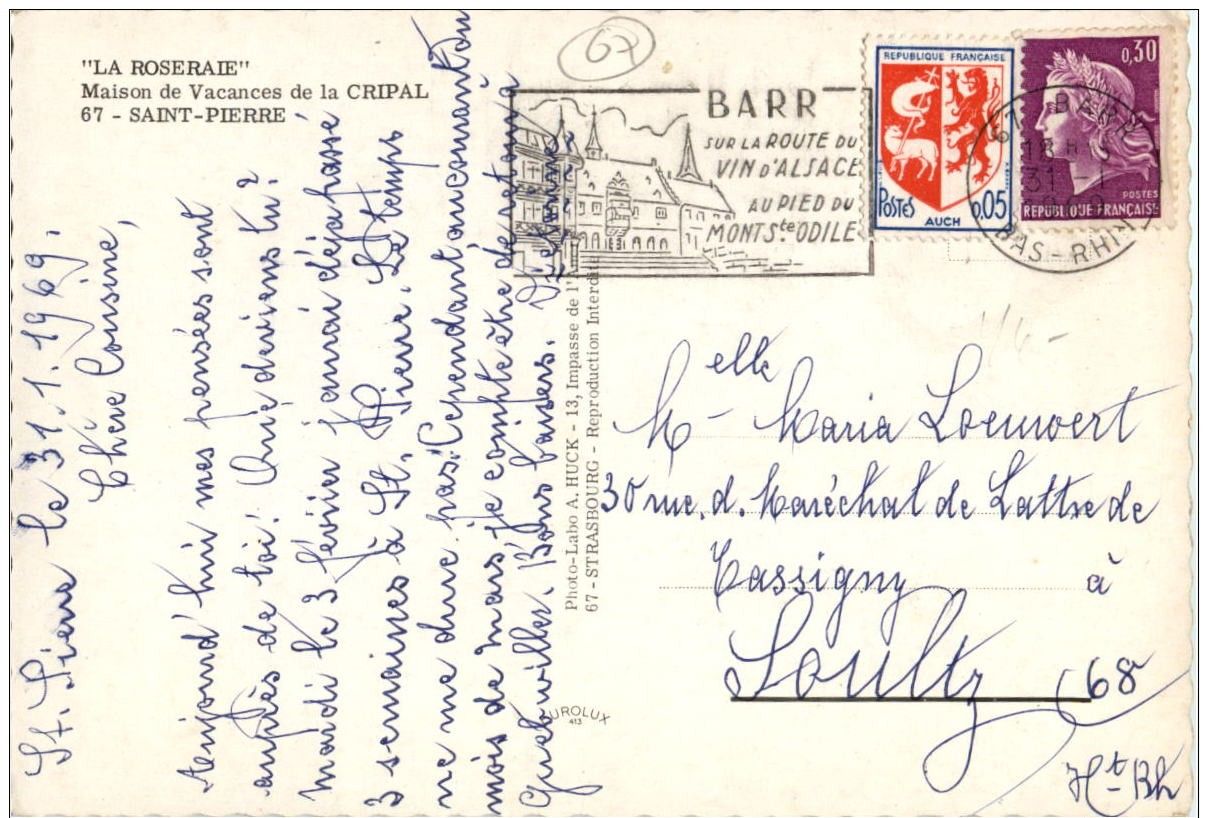 "LA ROSERAIE"
Maison de Vacances de la CRIPAL
67 - SAINT-PIERRE
67
BARR
SUR LA ROUTE DU
VIN D'ALSACE
AU PIED DU
MONT Ste ODILE
REPUBLIQUE FRANÇAISE
POSTES
AUCH
0,05
0,30
POSTES
REPUBLIQUE FRANÇAISE
67 BARR
18H
31 - 1
BAS-RHIN
St. Pierre le 31.1.1969.
Chère Cousine,
Aujourd'hui mes pensées sont
auprès de toi! Que deviens tu?
Mardi le 3 février j'aurai déjà passé
3 semaines à St. Pierre. Le temps
ne me dure pas! Cependant au courant du
mois de mars je compte être de retour à
Guebwiller. Bons baisers.
Photo-Labo A. HUCK - 13, Impasse de l'
67 - STRASBOURG - Reproduction Interdite
EUROLUX
413
Melle Maria Loewert
30 rue. d. Maréchal de Lattre de
Tassigny à
Soultz 68
Ht Rh